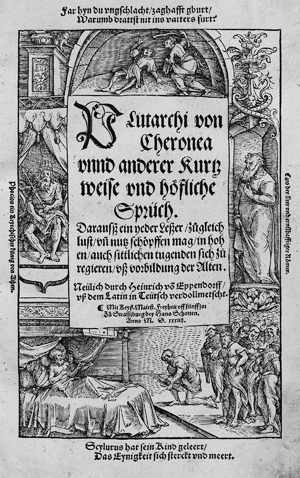 Far hyn du vngschlacht/zaghafft gburt/
Warumb drattst nit ins vatters furt?
PLutarchi von
Cheronea
vnnd anderer Kurtz
weise vnd höfliche
Sprüch.
Darauß ein yeder Leßer/zůgleich
lust/vñ nutz schöpffen mag/in hoh
en/auch sittlichen tugenden sich zů
regieren/vß vorbildung der Alten.
Neülich durch Heinrich võ Eppendorff/
vß dem Latin in Teütsch verdollmetscht.
Mit Keyß. Maiest. Freyheit vff fünff jar
Zů Straßburg bey Hans Schotten.
Anno M. D. xxxiiij.
Cato der
Römer.
Scylurus hat sein Kind geleert/
Das Eynigkeit sich sterckt vnd meert.